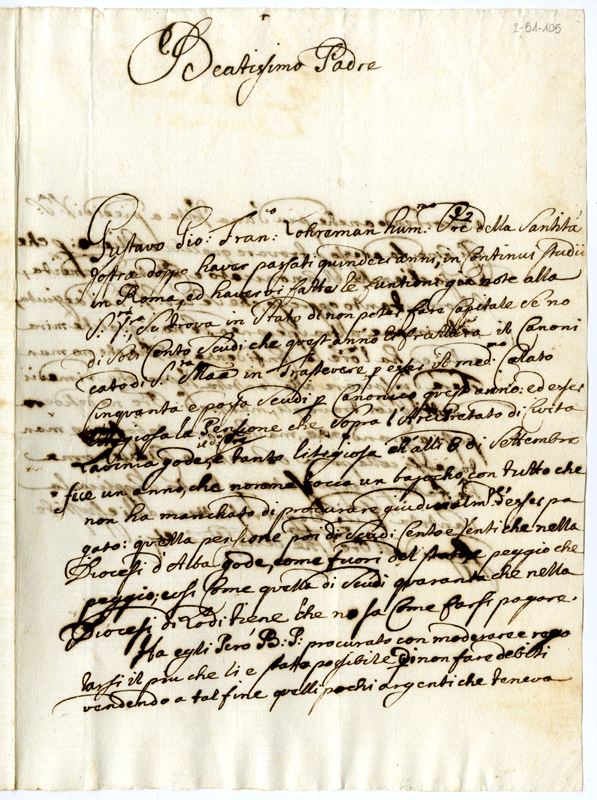 2-51-105
Beatissimo Padre
Gustavo Gio: Fran:co Lohreman hum:mo Ore della Santità
Vostra doppo haver passati quindeci anni, in continui studii
in Roma, ed havervi fatte le funtioni già note alla
S.tà V.ra, si trova in stato di non poter fare capitale se no
di soli Cento Scudi che quest'anno li frutterà il Canoni
cato di S.ta M.a in Trastevere p esser il med:mo calato
Cinquanta e passa Scudi p Canonico quest'anno: ed esser
litigiosa la Pensione che sopra l'Arcipretato di Civita
Lavinia gode, e tanto litigiosa ch'alli 8 di Settembre
fice un anno, che non ne tocca un bajocho, con tutto che
non ha manchato di procurare giudicialm.te d'esser pa
gato: quella pensione poi di Scudi Cento e Venti che nella
Diocesi d'Alba gode, come fuori del stato, e peggio che
peggio; così Come quella di Scudi quaranta che nella
Diocesi di Lodi tiene che no sa Come farsi pagare.
Ha egli Però B: P: procurato con moderare e rego
larsi il piu che li e stato possibile di non fare debiti
vendendo a tal fine quelli pochi argenti che teneva